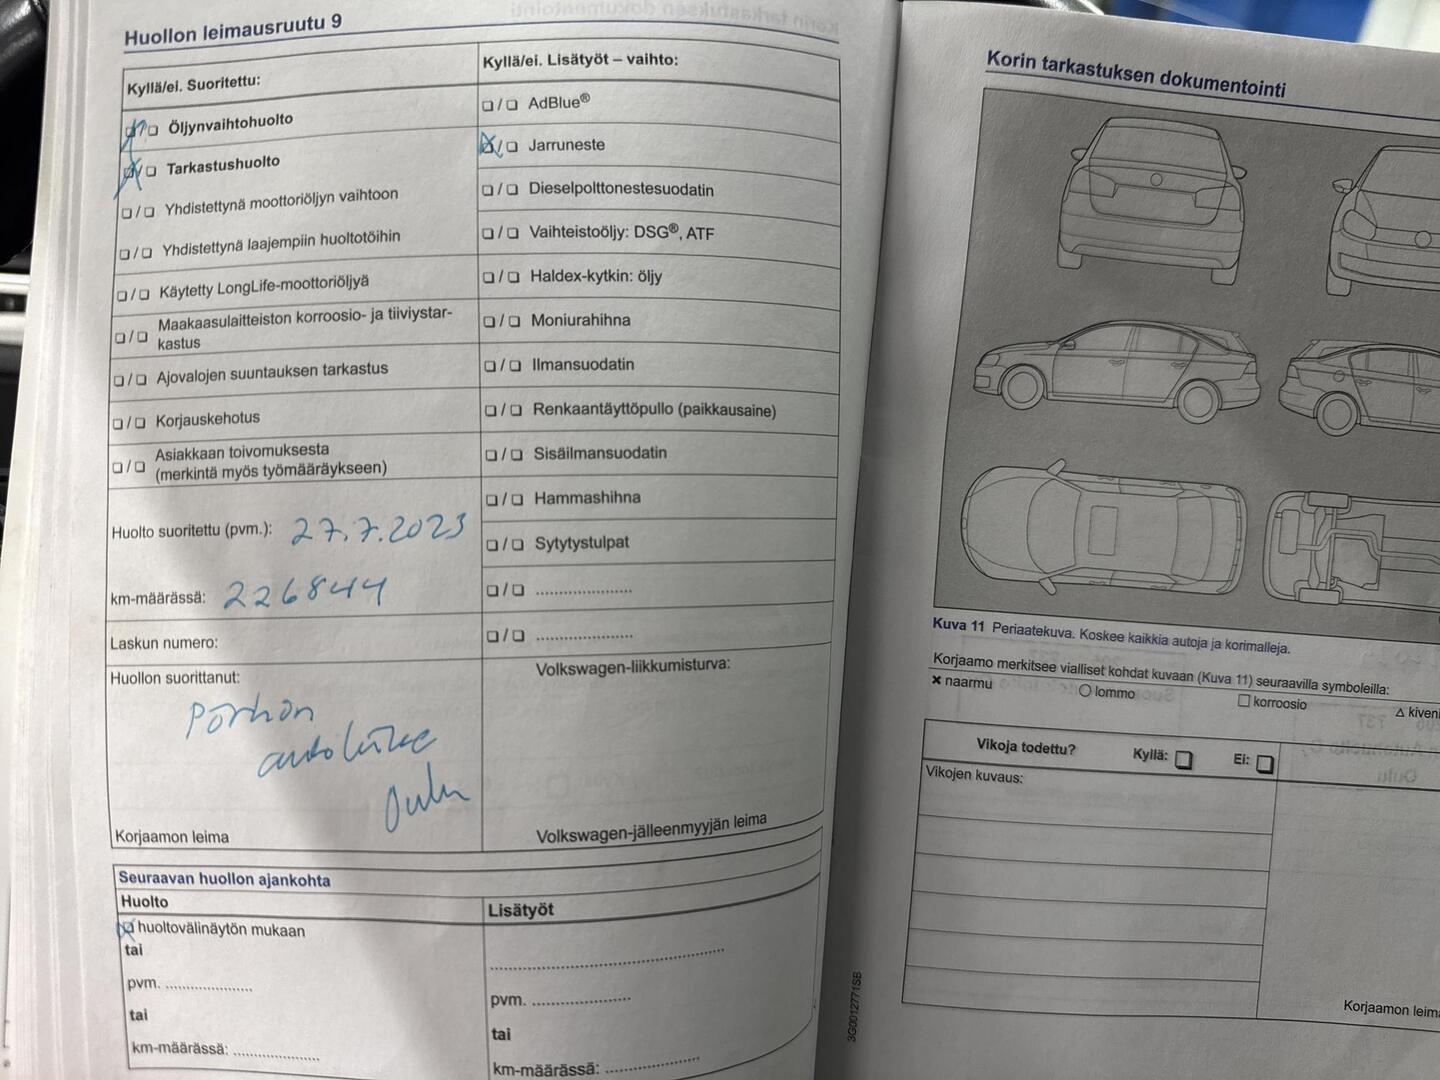 Huollon leimausruutu 9
Kyllä/ei. Suoritettu:
❏ / ❏ Öljynvaihtohuolto
❏ / ❏ Tarkastushuolto
❏ / ❏ Yhdistettynä moottoriöljyn vaihtoon
❏ / ❏ Yhdistettynä laajempiin huoltotöihin
❏ / ❏ Käytetty LongLife-moottoriöljyä
❏ / ❏ Maakaasulaitteiston korroosio- ja tiiviystar-
kastus
❏ / ❏ Ajovalojen suuntauksen tarkastus
❏ / ❏ Korjauskehotus
❏ / ❏ Asiakkaan toivomuksesta
(merkintä myös työmääräykseen)
Huolto suoritettu (pvm.): 27.7.2023
km-määrässä: 226844
Laskun numero:
Huollon suorittanut:
Pörhön
autoliike
Oulu
Korjaamon leima
Kyllä/ei. Lisätyöt – vaihto:
❏ / ❏ AdBlue®
❏ / ❏ Jarruneste
❏ / ❏ Dieselpolttonestesuodatin
❏ / ❏ Vaihteistoöljy: DSG®, ATF
❏ / ❏ Haldex-kytkin: öljy
❏ / ❏ Moniurahihna
❏ / ❏ Ilmansuodatin
❏ / ❏ Renkaantäyttöpullo (paikkausaine)
❏ / ❏ Sisäilmansuodatin
❏ / ❏ Hammashihna
❏ / ❏ Sytytystulpat
❏ / ❏ ......................
❏ / ❏ ......................
Volkswagen-liikkumisturva:
Volkswagen-jälleenmyyjän leima
Seuraavan huollon ajankohta
Huolto
❏ huoltovälinäytön mukaan
tai
pvm. ....................
tai
km-määrässä: ....................
Lisätyöt
......................................................
pvm. ......................
tai
km-määrässä: ......................
3G0012771SB
Korin tarkastuksen dokumentointi
Kuva 11 Periaatekuva. Koskee kaikkia autoja ja korimalleja.
Korjaamo merkitsee vialliset kohdat kuvaan (Kuva 11) seuraavilla symboleilla:
✖ naarmu ○ lommo □ korroosio △ kiveni
Vikoja todettu? Kyllä: ❏ Ei: ❏
Vikojen kuvaus:
Korjaamon leima